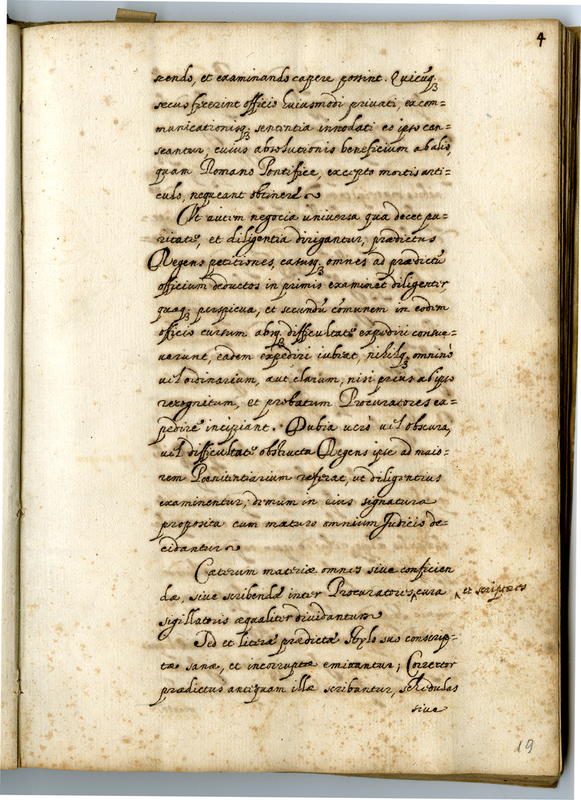 4
rendo, et examinando capere possint. Quicūq3
secus fecerint officio huiusmodi privati, excom=
municationisq3 sententia innodati eo ipso cen=
seantur; cuius absolutionis beneficium ab alio,
quam Romano Pontifice, excepto mortis arti=
culo, nequeant obtinere
Ut autem negocia universa qua decet pu=
ritate, et diligentia dirigantur, prædictus
Regens petitiones, casusq3 omnes ad prædictū
officium deductos in primis examinet diligenter
quæq3 perspicua, et secundū cōmunem in eodem
officio cursum absq3 difficultate expediri consue=
verunt, eadem expediri iubeat, nihilq3 omninò
vel ordinarium, aut clarum, nisi prius ab ipso
recognitum, et probatum Procuratores ex=
pedire incipiant. Dubia vero vel obscura,
vel difficultate obstructa Regens ipse ad maio=
rem Pœnitentiarium referat, ut diligentius
examinentur, demum in eius signatura
proposita cum maturo omnium Judicio de=
cidantur
Cæterum materiæ omnes sive conficien
dæ, sive scribendæ inter Procuratores, cura et scriptores
sigillatoris æqualiter dividantur
Sed et literæ prædictæ stylo suo conscrip=
tæ sanæ, et incorruptæ emittantur; Corrector
prædictus antiquam illæ scribantur, schedulas
sive
19